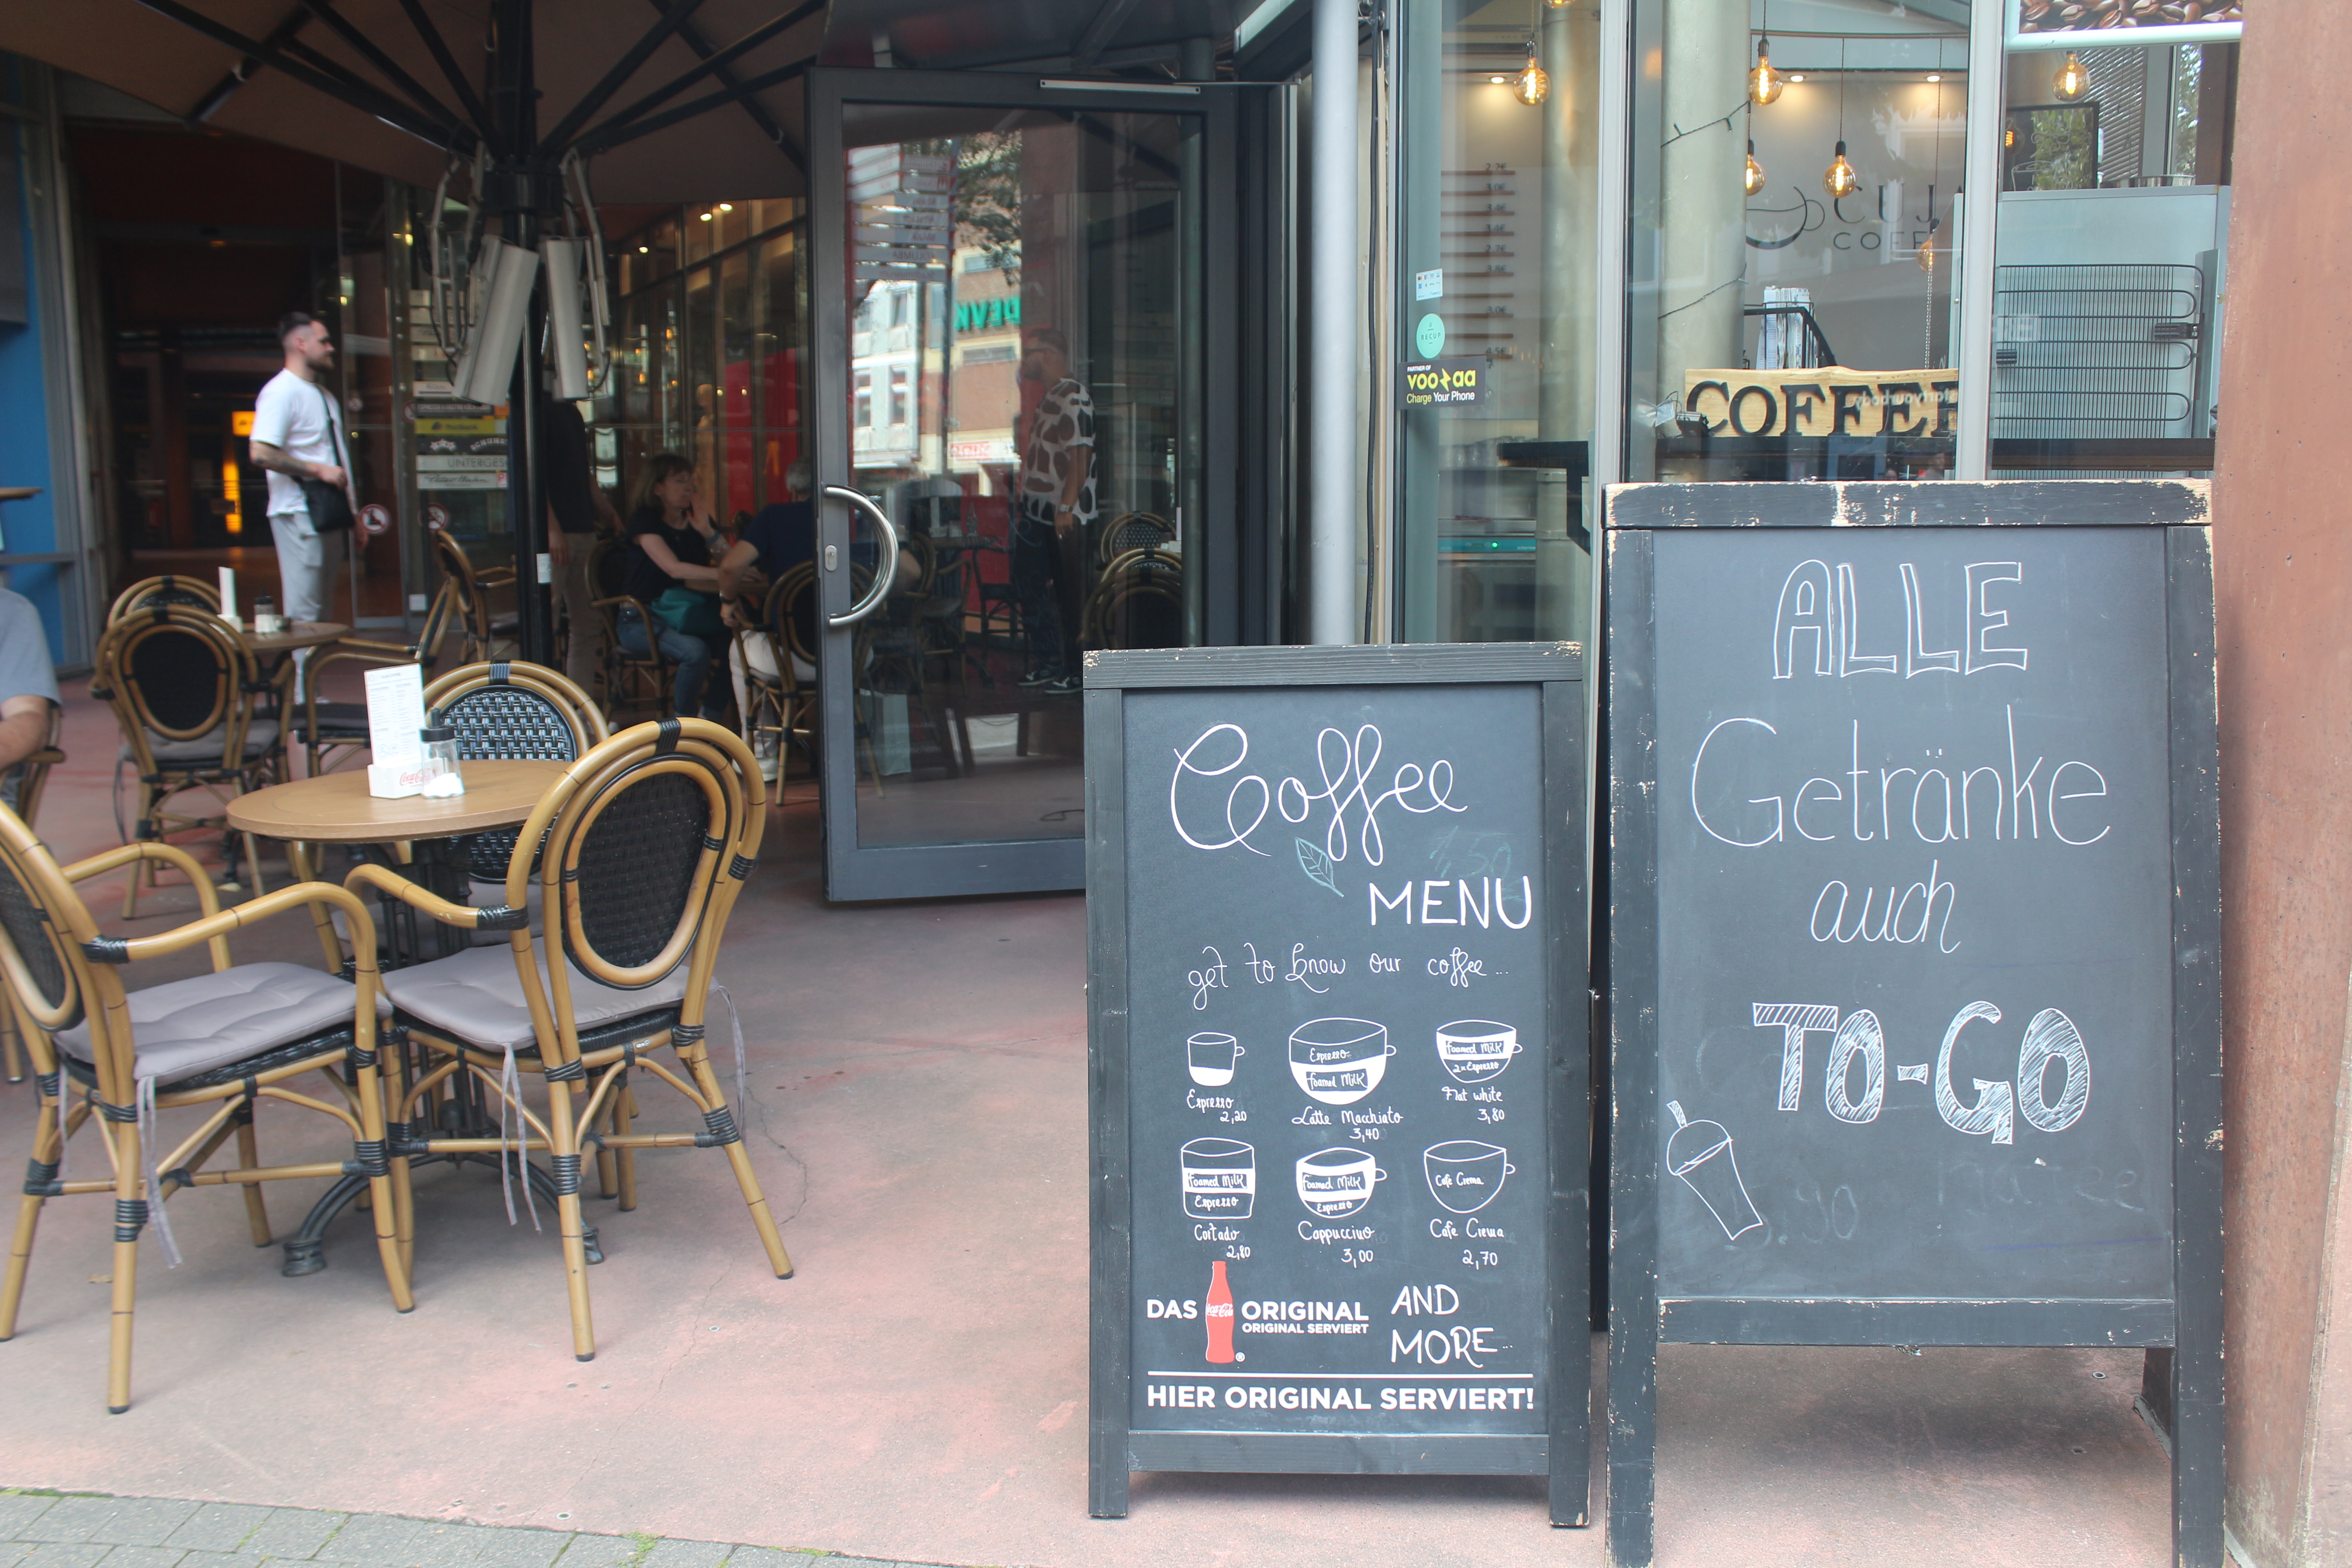 CUJ
COFF
COFFEE
PARTNER OF
VOOZAA
Charge Your Phone
RECUP
UNTERGES
Postbank
Coca-Cola
Coffee
MENU
get to know our coffee...
Espresso
2,20
Espresso
Foamed Milk
Latte Macchiato
3,40
Foamed Milk
2x Espresso
Flat white
3,80
Foamed Milk
Espresso
Cortado
2,80
Foamed Milk
Espresso
Cappuccino
3,00
Cafe Crema
Cafe Crema
2,70
DAS Coca-Cola ORIGINAL
ORIGINAL SERVIERT
AND
MORE...
HIER ORIGINAL SERVIERT!
ALLE
Getränke
auch
TO-GO